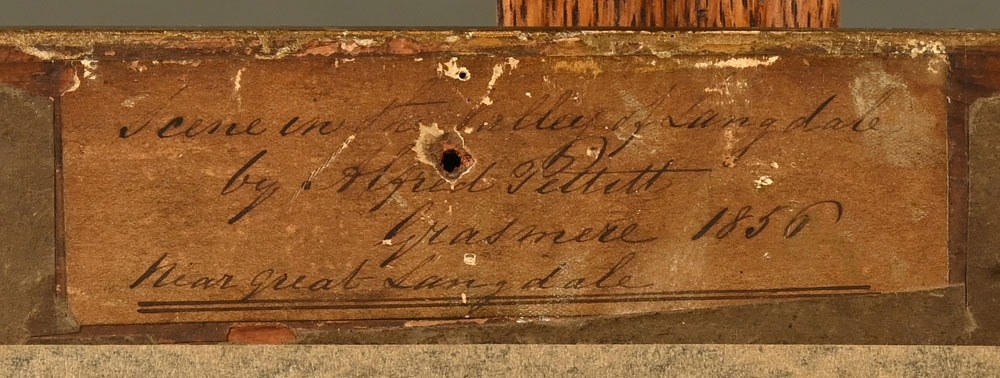 Scene in the Valley of Langdale
by Alfred Pettitt
Grasmere 1856
Near great Langdale